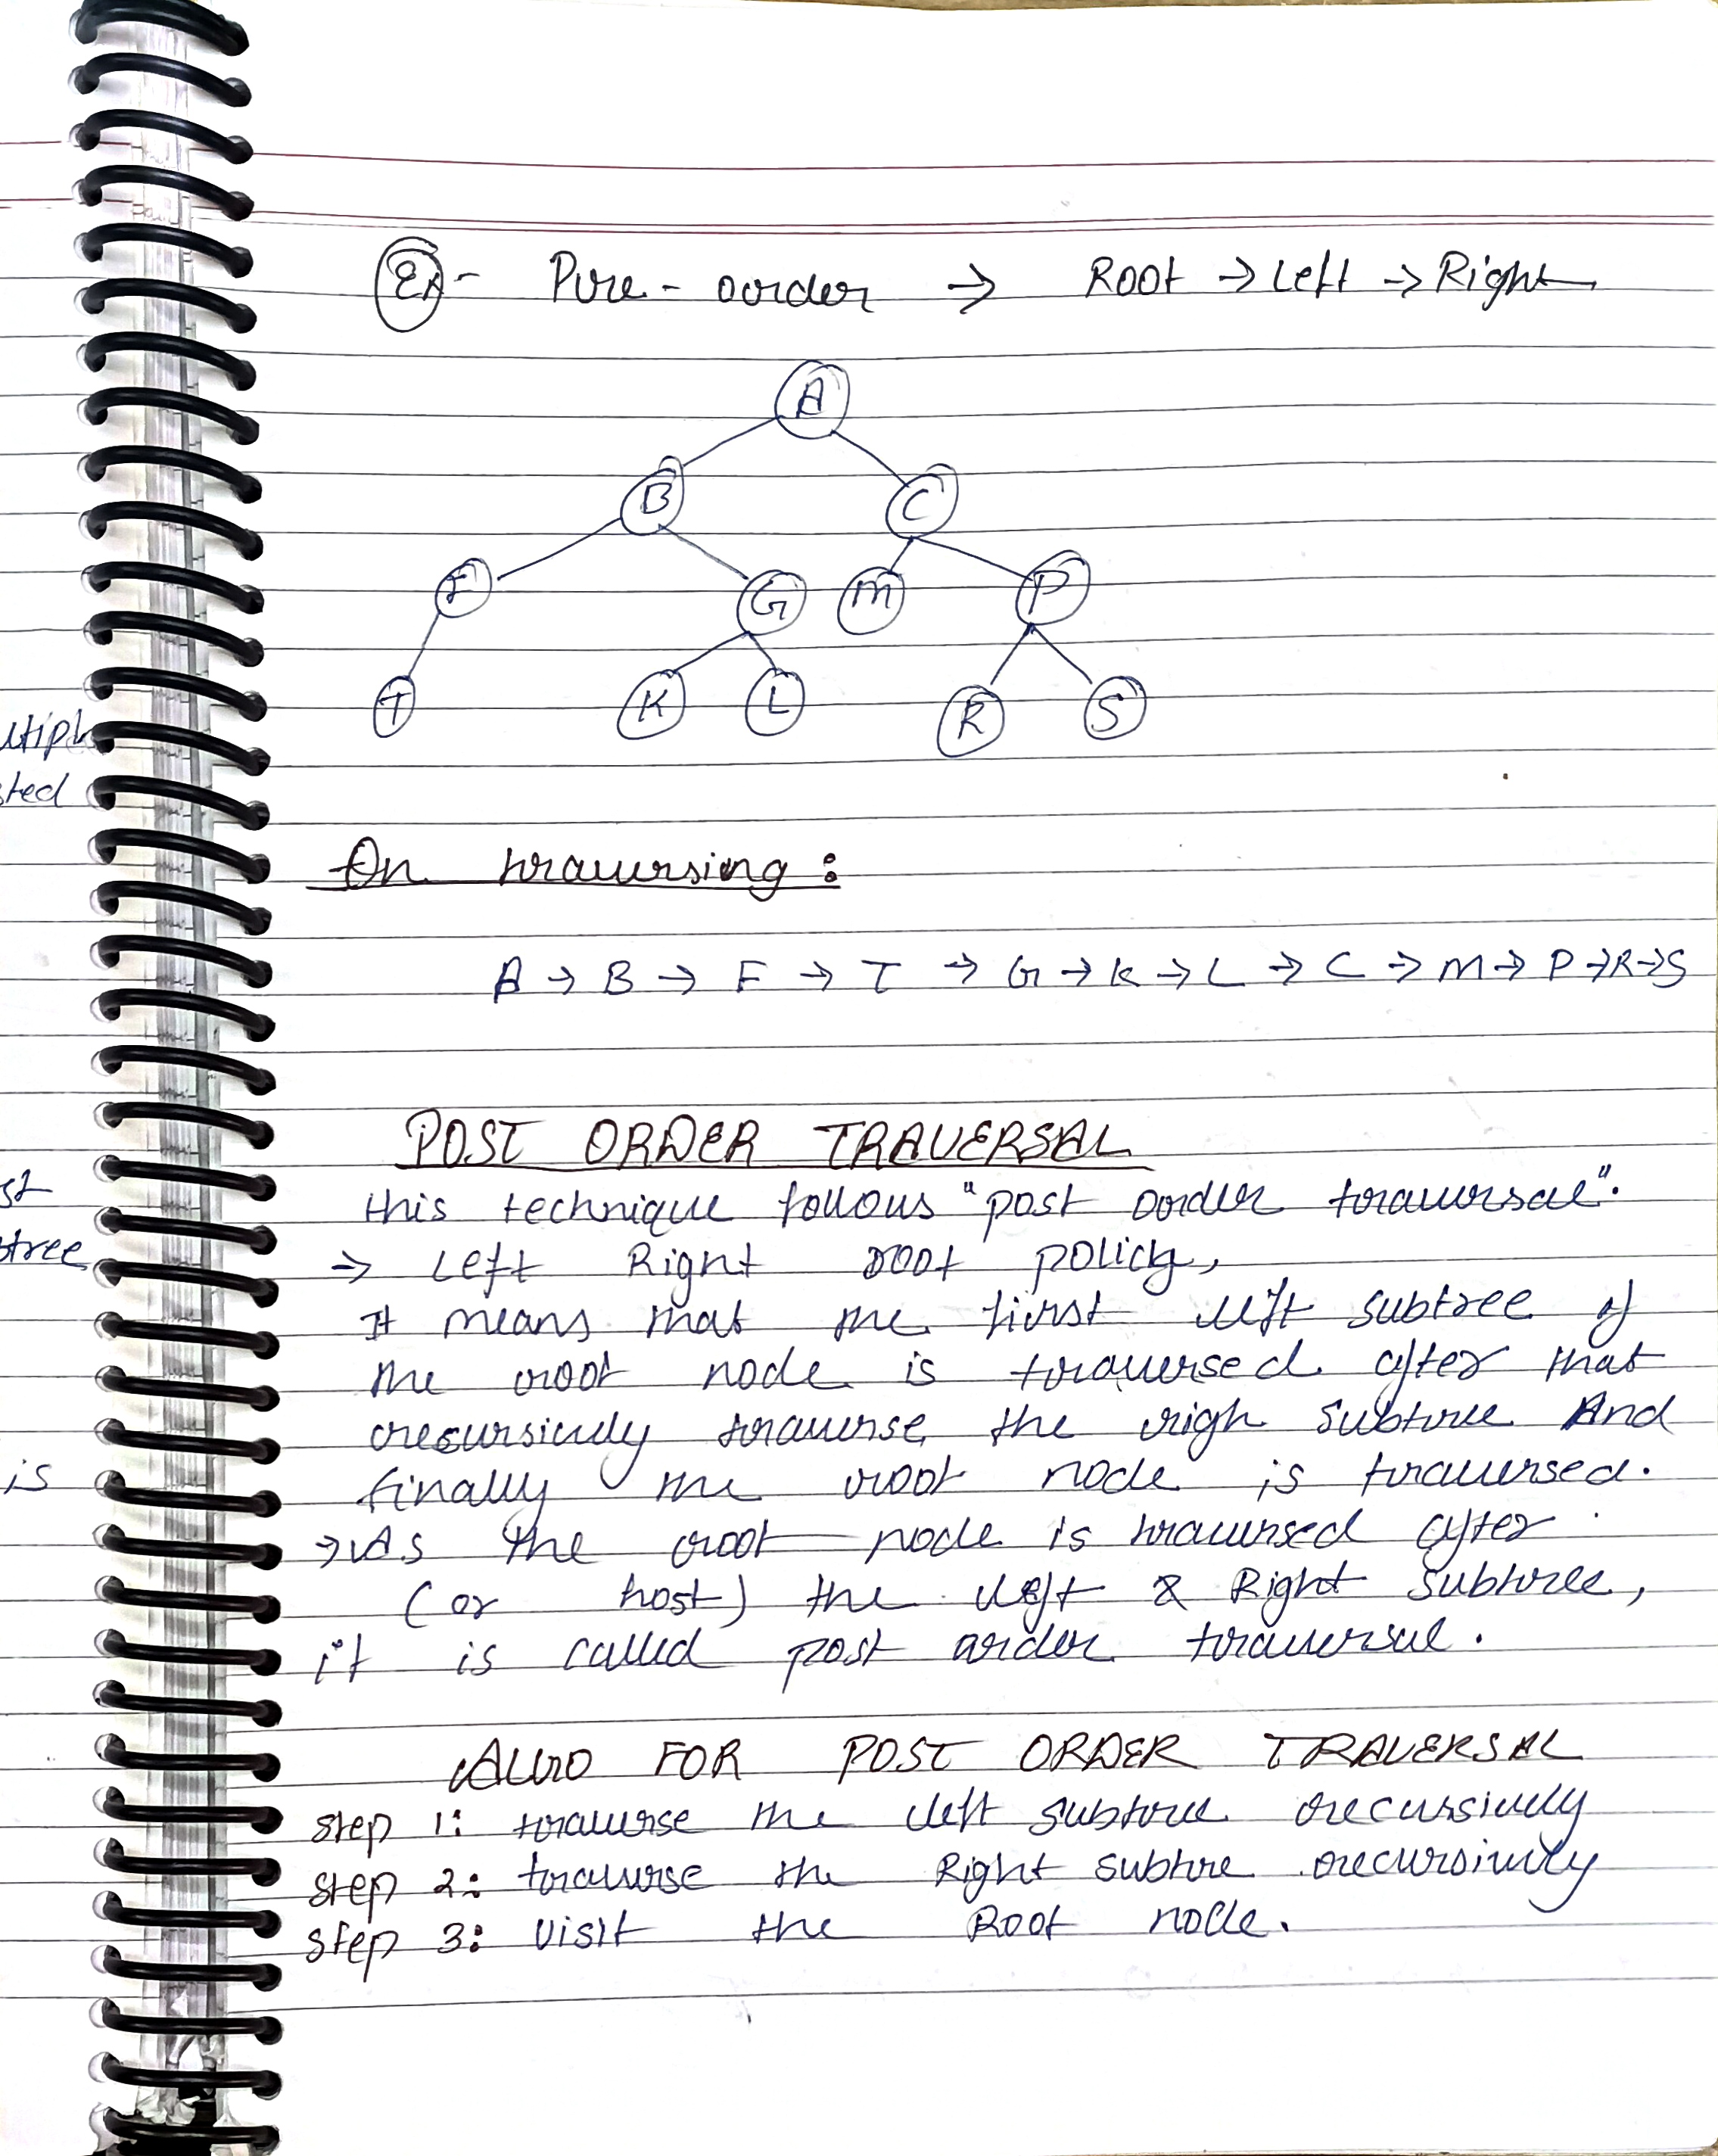 Ex - Pre-order → Root → Left → Right
A
B C
F G M P
T K L R S
On traversing :
A → B → F → T → G → K → L → C → M → P → R → S
POST ORDER TRAVERSAL
this technique follows "post order traversal".
→ Left Right root policy,
It means that the first left subtree of
the root node is traversed after that
recursively traverse the righ subtree And
finally the root node is traversed.
→ As the root node is traversed after
(or host) the left & Right subtree,
it is called post order traversal.
ALGO FOR POST ORDER TRAVERSAL
step 1: traverse the left subtree recursively
step 2: traverse the Right subtree recursively
step 3: visit the Root node.
utiple
sted
st
tree
is